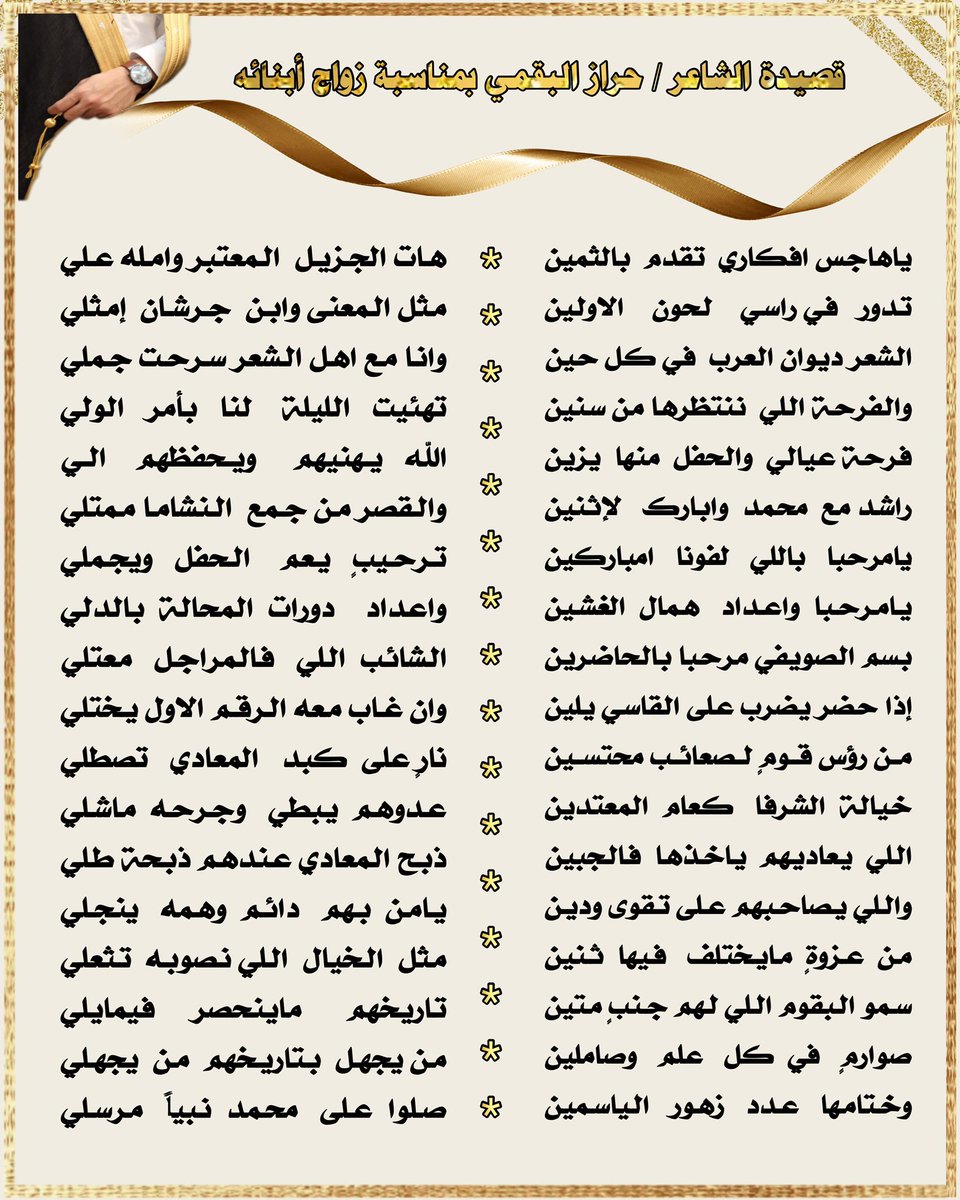 قصيدة الشاعر / حراز البقمي بمناسبة زواج أبنائه
ياهاجس افكاري تقدم بالثمين * هات الجزيل المعتبر وامله علي
تدور في راسي لحون الاولين * مثل المعنى وابن جرشان إمثلي
الشعر ديوان العرب في كل حين * وانا مع اهل الشعر سرحت جملي
والفرحة اللي ننتظرها من سنين * تهئيت الليلة لنا بأمر الولي
فرحة عيالي والحفل منها يزين * الله يهنيهم ويحفظهم الي
راشد مع محمد وابارك لإثنين * والقصر من جمع النشاما ممتلي
يامرحبا باللي لفونا امباركين * ترحيبٍ يعم الحفل ويجملي
يامرحبا واعداد همال الغشين * واعداد دورات المحالة بالدلي
بسم الصويفي مرحبا بالحاضرين * الشائب اللي فالمراجل معتلي
إذا حضر يضرب على القاسي يلين * وان غاب معه الرقم الاول يختلي
من رؤس قومٍ لصعائب محتسين * نارٍ على كبد المعادي تصطلي
خيالة الشرفا كعام المعتدين * عدوهم يبطي وجرحه ماشلي
اللي يعاديهم ياخذها فالجبين * ذبح المعادي عندهم ذبحة طلي
واللي يصاحبهم على تقوى ودين * يامن بهم دائم وهمه ينجلي
من عزوةٍ مايختلف فيها ثنين * مثل الخيال اللي نصوبه تثعلي
سمو البقوم اللي لهم جنبٍ متين * تاريخهم ماينحصر فيمايلي
صوارمٍ في كل علم وصاملين * من يجهل بتاريخهم من يجهلي
وختامها عدد زهور الياسمين * صلوا على محمد نبياً مرسلي